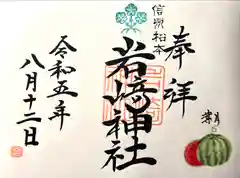 奉拝
信州松本
岩﨑神社
令和五年
八月十二日